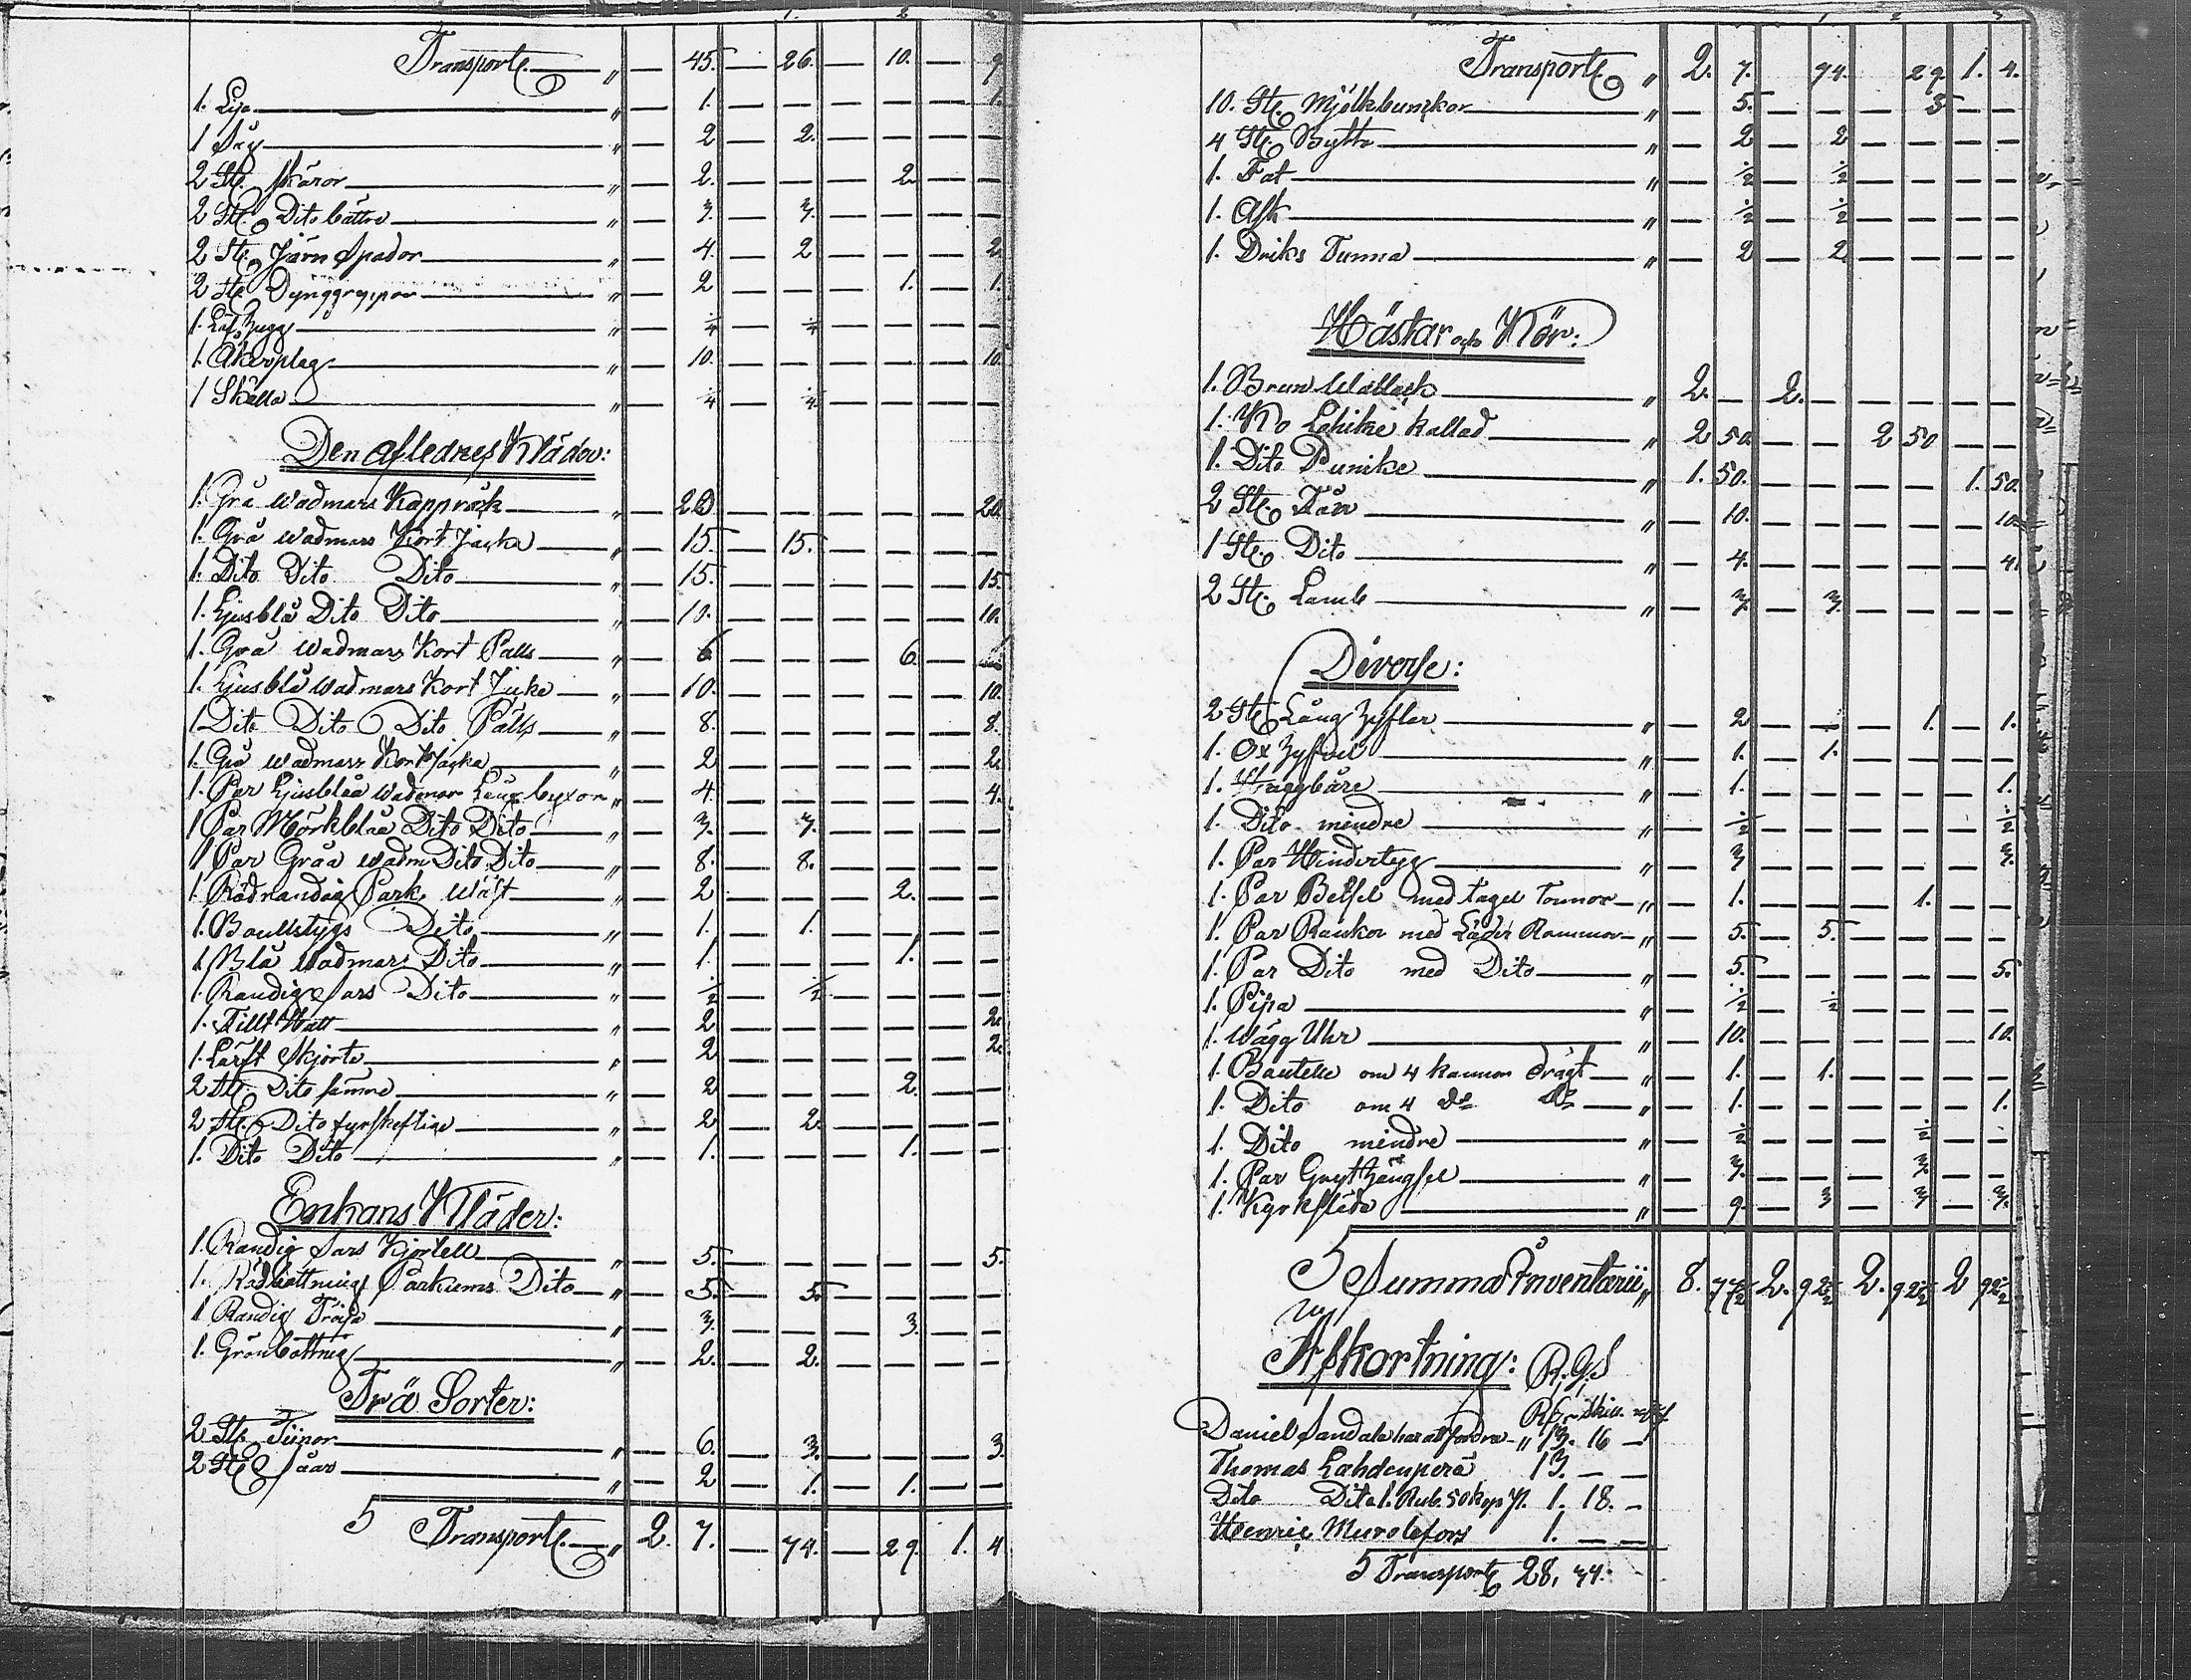 1. 2 3
Transport „ — 45. — 26. — 10. — 9
1. Lya „ — 1. — — — — — 1.
1 Såg „ — 2 — 2. — — — —
2 St. Skäror „ — 2. — — — 2. — —
2 St. Dito bättre „ — 3. — 3. — — — —
2 St. Järn Spador „ — 4. — 2 — — — 2.
2 St. Dynggrepar „ — 2 — — — 1. — 1.
1. „ — ¼ — ¼ — — — —
1. Åkerplog „ — 10. — — — — — 10.
1 Skälla „ — ¼ — ¼ — — — —
Den aflednes Kläder:
1. Grå Wadmars Kappråk „ — 20 — — — — — 20.
1. Grå Wadmars Kort Jacka „ — 15. — 15. — — — —
1. Dito Dito Dito „ — 15. — — — — — 15.
1. Ljusblå Dito Dito „ — 10. — — — — — 10.
1. Grå Wadmars Kort Palls „ — 6 — — — 6. — —
1. Ljusblå Wadmars Kort Jacka „ — 10. — — — — — 10.
1 Dito Dito Dito Palls „ — 8. — — — — — 8.
1. Grå Wadmars Kort Jacka „ — 2 — — — — — 2.
1. Par Ljusblåa Wadmar Långbyxor „ — 4. — — — — — 4.
1 Par Mörkblåa Dito Dito „ — 3. — 3. — — — —
1 Par Gråa Wadm Dito Dito „ — 8. — 8. — — — —
1. Rödrandig Park. Wäst „ — 2 — — — 2. — —
1. Boullstygs Dito „ — 1. — 1. — — — —
1 Blå Wadmars Dito „ — 1. — — — 1. — —
1. Randig Sars Dito „ — ½ — ½ — — — —
1. Fillt Hatt „ — 2 — — — — — 2.
1. Lärft Skjorta „ — 2 — — — — — 2.
2 St. Dito sämre „ — 2 — — — 2. — —
2 St. Dito fyrskeftige „ — 2 — 2 — — — —
1. Dito Dito „ — 1. — — — 1. — —
Enkans Kläder:
1. Randig Sars Kjortell „ — 5. — — — — — 5.
1. Rödbottnig Parkums Dito „ — 5. — 5. — — — —
1 Randig Tröja „ — 3. — — — 3. — —
1. Grönbottnig „ — 2. — 2. — — — —
Trä Sorter:
2 St. Tiinor „ — 6. — 3. — — — 3.
2 St. Såar „ — 2 — 1. — 1. — —
S Transport „ 2. 7. — 74. — 29. 1. 4
1 2 3
Transport „ 2. 7. 74. 29. 1. 4.
10. St. Mjölkbunckar „ — 5. — — — 5 — —
4 St. Bytta „ — 2 — 2 — — — —
1. Fat „ — ½ — ½ — — — —
1. Ask „ — ½ — ½ — — — —
1. Driks Tunna „ — 2 — 2 — — — —
Hästar och Kör:
1. Brun Wallack „ 2. — 2. — — — — —
1. Ko Lehike kallad „ 2 50. — — 2 50 — —
1. Dito Punike „ 1. 50. — — — — 1. 50.
2 St. Får „ — 10. — — — — — 10.
1 St. Dito „ — 4. — — — — — 4.
2 St. Lamb „ — 3. — 3. — — — —
Diverse:
2 St. Lång Zyflar „ — 2 — — — 1. — 1.
1. Ox Zyfvel „ — 1. — 1. — — — —
1. „ — 1. — — — — — 1.
1. Dito mindre „ — ½ — — — — — ½
1. Par Hindertyg „ — 3 — — — — — 3.
1. Par Betsel med tagel Tommar „ — 1. — — — 1. — —
1. Par Rankor med Läder Rammor „ — 5. — 5. — — — —
1. Par Dito med Dito „ — 5. — — — — — 5.
1. Pipa „ — ½ — ½ — — — —
1. Wägg Uhr „ — 10. — — — — — 10.
1. Boutelle om 4 kannor drägt „ — 1. — 1. — — — —
1. Dito om 4 do do „ — 1. — — — — — 1.
1. Dito mindre „ — ½ — — — ½ — —
1. Par Grytthängsel „ — 3. — — — 3. — —
1. Kyrksläde „ — 9. — 3 — 3 — 3.
S Summa Inventarii „ 8. 77½ 2. 92½ 2. 92½ 2 92½
Afkortning: R, G, S
Daniel Sandala har att fordra „ 13. 16 —
Thomas Lahdenperä 13. — —
Dito Dito 1. Rub. 50 kop 1. 18. —
Henric Murolefors 1. — —
S Transport 28, 34.